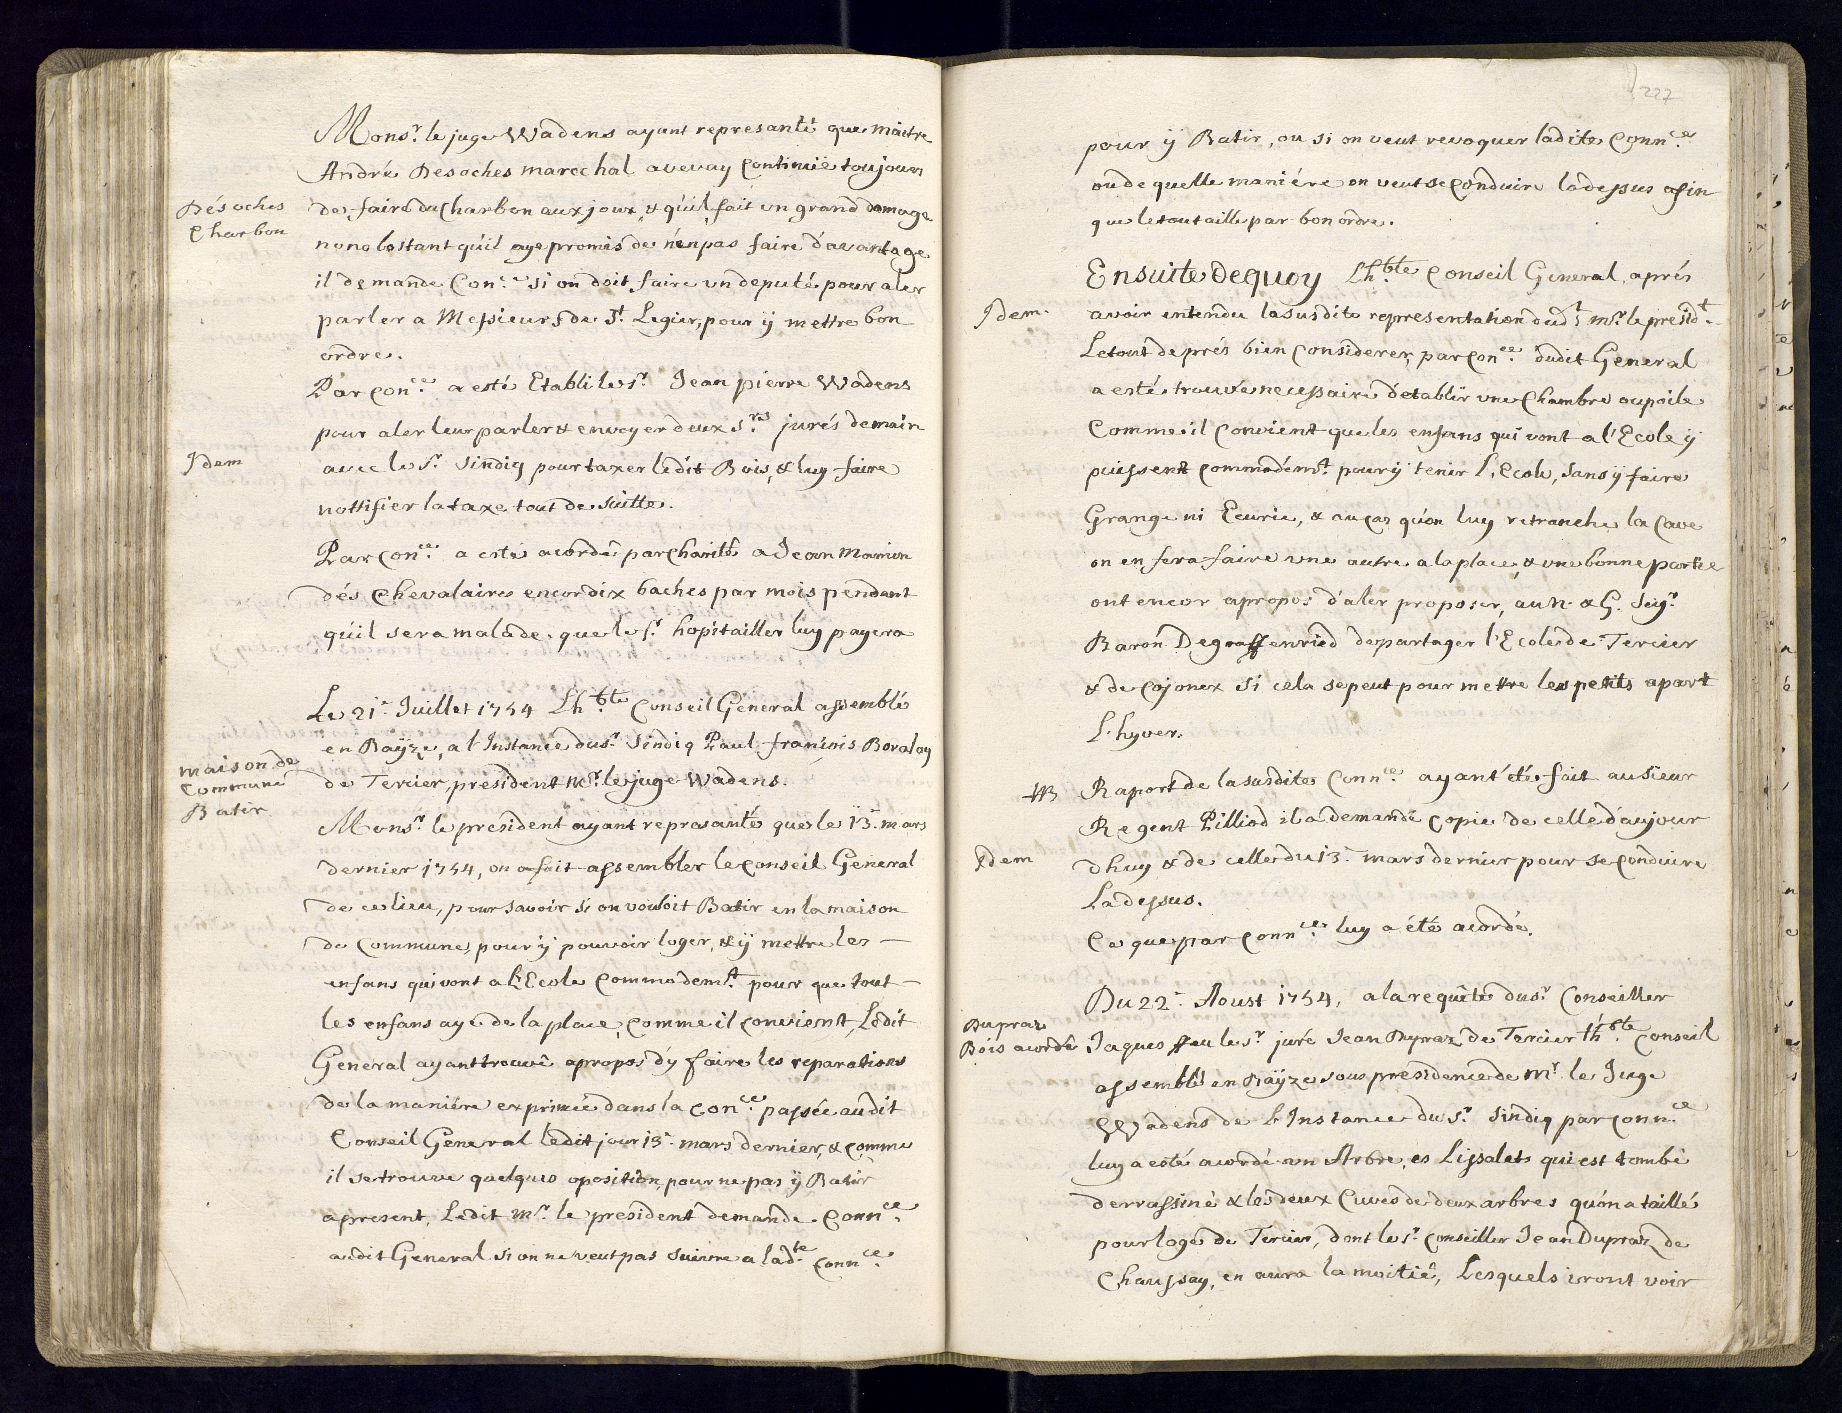 Monsr. le juge Wadens ayant represanté que maitre
André Desoches marechal a vevay Continuë toujours
Désoches
Charbon
de faire du Charbon aux joux, & qu'il fait un grand domage
nonobstant qu'il aye promis de n'en pas faire d'avantage
il demande Con.ce si on doit faire un deputé pour aler
parler a Messieurs de St. Legier, pour ÿ mettre bon
ordre.
Par Con.ce a esté Etabli le sr. Jean pierre Wadens
pour aler leur parler & envoyer deux Srs jurés demain
Idem
avec le Sr. Sindiq pour taxer ledit Bois, & luy faire
nottifier la taxe tout de suitte.
Par Con.ce a esté acordé par Charité a Jean Mamin
dés Chevalaires encor dix baches par mois pendant
qu'il sera malade. que le Sr. hopitallier luy payera
Le 21e. Juillet 1754 Lh.ble Conseil General assemblé
en Baÿze, a l'Instance du sr. Sindiq Paul françois Boraloy
maison de
Commune
Batir
de Tercier, president Mr. le juge Wadens.
Monsr. le president ayant represanté que le 13e. mars
dernier 1754, on a fait assembler le Conseil General
de ce lieu, pour savoir si on vouloit Batir en la maison
de Commune, pour ÿ pouvoir loger, & ÿ mettre les —
enfans qui vont a l'Ecole Commodemt. pour que tout —
les enfans aye de la place, comme il convient, Ledit
General ayant trouvé apropos d'y faire les reparations
de la maniére exprimée dans la Con.ce passée audit
Conseil General ledit jour 13e. mars dernier, & comme
il se trouve quelques oposition, pour ne pas ÿ Batir
apresent, Ledit Mr. le president demande Conn.ce
audit General si on ne veut pas suivre a ladte. Conn.ce
227
pour ÿ Batir, ou si on veut revoquer ladite Conn.ce
ou de quelle maniére on veut se conduire la dessus afin
que le tout aille par bon ordre.
Ensuite dequoy Lh.ble Conseil General, aprés
Idem.
avoir entendu la susdite representation dudt. Mr. le presidt.
Le tout de prés bien Considerer, par Con.ce dudit General
a esté trouvé necessaire d'etablir une Chambre ou poile
Comme il Convient que les enfans qui vont a l'Ecole ÿ
puissent commodemt. pour ÿ tenir L'Ecole, sans ÿ faire
Grange ni Ecurie, & au cas qu'on luy retranche la Cave
on en fera faire une autre a la place, & une bonne partie
ont encor apropos d'aler proposer, au N. & G. Seigr.
Baron Degraffenried de partager l'Ecole de Tercier
& de Cojonex si cela se peut pour mettre les petits apart
L'hyver.
NB
Raport de la susdite Conn.ce ayant été fait au sieur
Regent Pilliod il a demandé Copie de celle d'aujour
Idem
dhuy & de celle du 13e. mars dernier pour se conduire
La dessus.
Ce que par Conn.ce luy a été acordé.
Du 22e. Aoust 1754, a la requête du sr. Conseiller
Dupraz
Bois acordé
Jaques feu le Sr. juré Jean Dupraz de Tercier lh.ble Conseil
assemblé en Baÿze sous presidence de Mr. le Juge
Wadens de L'Instance du Sr. Sindiq par Conn.ce
luy a esté acordé un Arbre, es Lissalets qui est tombé
derrassiné & les deux Cuves de deux arbres qu'on a taillé
pour loge de Tercier, dont le Sr. Conseiller Jean Dupraz de
Chaussay, en aura la moitié, Lesquels iront voir